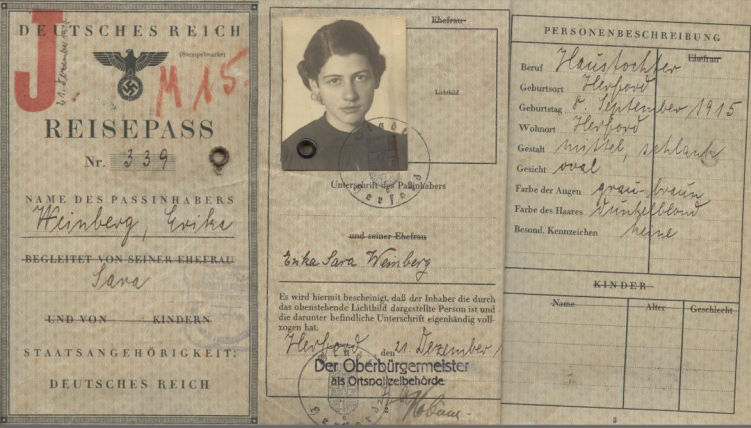 DEUTSCHES REICH
J
(Stempelmarke)
M 15.
REISEPASS
Nr. 339
NAME DES PASSINHABERS
Weinberg, Erika
BEGLEITET VON SEINER EHEFRAU
Sara
UND VON KINDERN
STAATSANGEHÖRIGKEIT:
DEUTSCHES REICH
Ehefrau
Lichtbild
Unterschrift des Paßinhabers
und seiner Ehefrau
Erika Sara Weinberg
Es wird hiermit bescheinigt, daß der Inhaber die durch
das obenstehende Lichtbild dargestellte Person ist und
die darunter befindliche Unterschrift eigenhändig voll-
zogen hat.
Herford, den 21. Dezember
Der Oberbürgermeister
als Ortspolizeibehörde
PERSONENBESCHREIBUNG
Ehefrau
Beruf Haustochter
Geburtsort Herford
Geburtstag 8. September 1915
Wohnort Herford
Gestalt mittel, schlank
Gesicht oval
Farbe der Augen grau-braun
Farbe des Haares dunkelblond
Besond. Kennzeichen keine
KINDER
Name Alter Geschlecht
3